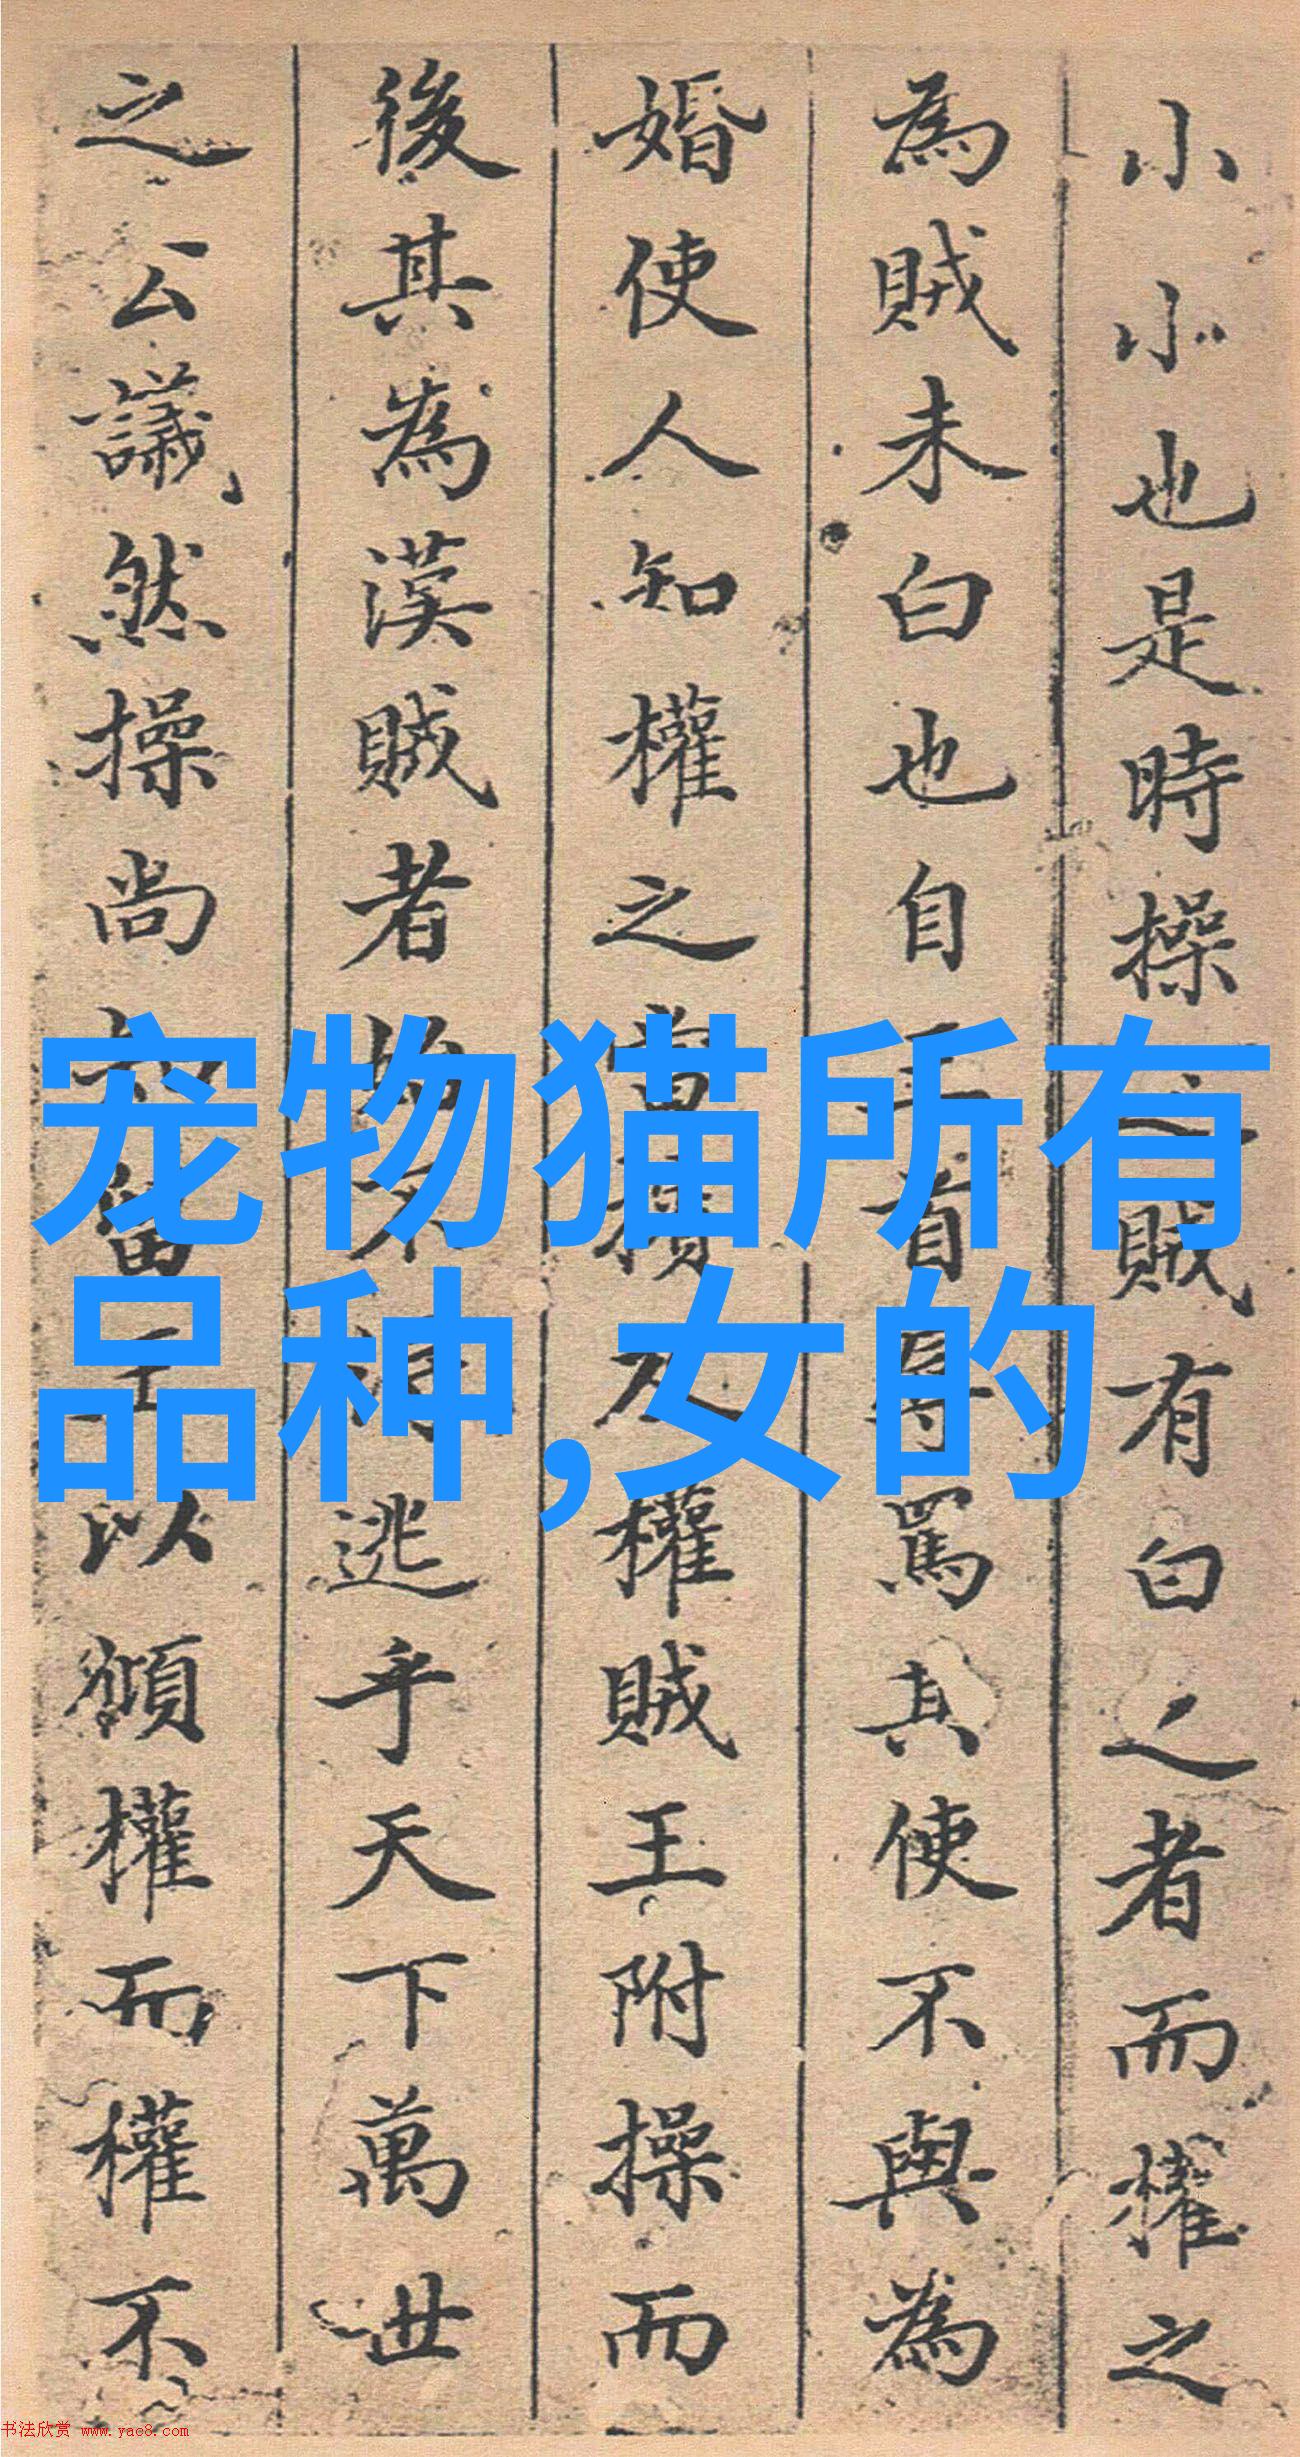 小小也是時操之賊有白之者而權之
為賊未白也自王者辱罵其使不與為
婚使人知權之當積入權賊王附操而
後其為漢賊者始不得逃乎天下萬世
之公議然操尚知畱王以償權而權不
宠物猫所有
品种,女的
书法欣赏 www.yac8.com